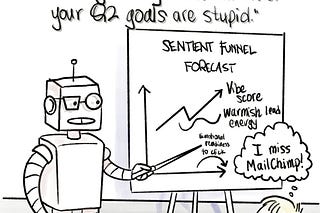 your Q2 goals are stupid."
SENTIENT FUNNEL
FORECAST
Vibe
score
Warmish lead
energy
Emotional
readiness
to click
I miss
MailChimp!